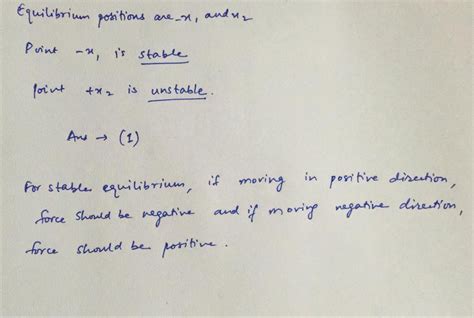 Equilibrium positions are -x, and x2
Point -x, is stable
Point +x2 is unstable.
Ans → (1)
For stable equilibrium, if moving in positive direction,
force should be negative and if moving negative direction,
force should be positive.